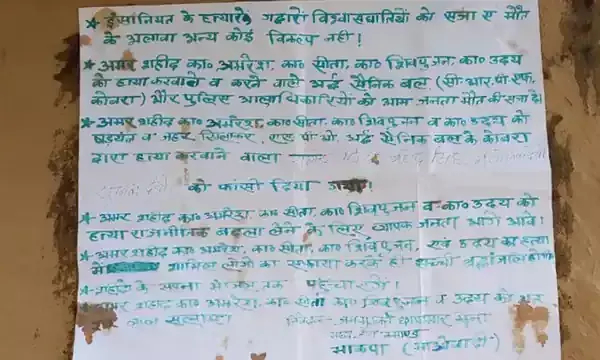 * इंसानियत के हत्यारे गद्दारों विश्वासघातियों को सजा ए मौत
के अलावा अन्य कोई विकल्प नहीं!
* अमर शहीद का० अमरेश, का० सीता, का० शिवपूजन, का० उदय
को हत्या करवाने व करने वाले अर्द्ध सैनिक बल (सी० आर. पी. एफ,
कोबरा) और पुलिस आला अधिकारियों को आम जनता मौत की सजा दे।
* अमर शहीद का० अमरेश, का० सीता, का० शिवपूजन व का० उदय को
षड्यंत्र व जहर खिलाकर, एस पी ओ, अर्द्ध सैनिक बल के कोबरा
द्वारा हत्या करवाने वाला
को फांसी दिया गया!
* अमर शहीद का० अमरेश, का० सीता, का० शिवपूजन व का० उदय की
हत्या राजनीतिक बदला लेने के लिए व्यापक जनता आगे आवे!
* अमर शहीद का० अमरेश, का० सीता, का० शिवपूजन, एवं उदय का हत्या
में शामिल लोगों का सफाया करके ही सच्ची श्रद्धांजलि होगी
* शहीदों के सपना मंजिल तक पहुंचाएंगे!
* अमर शहीद का० अमरेश, का० सीता का० शिवपूजन व उदय को
लाल सलाम!
निवेदक:- जनमुक्ति छापामार सेना
भाकपा (माओवादी)